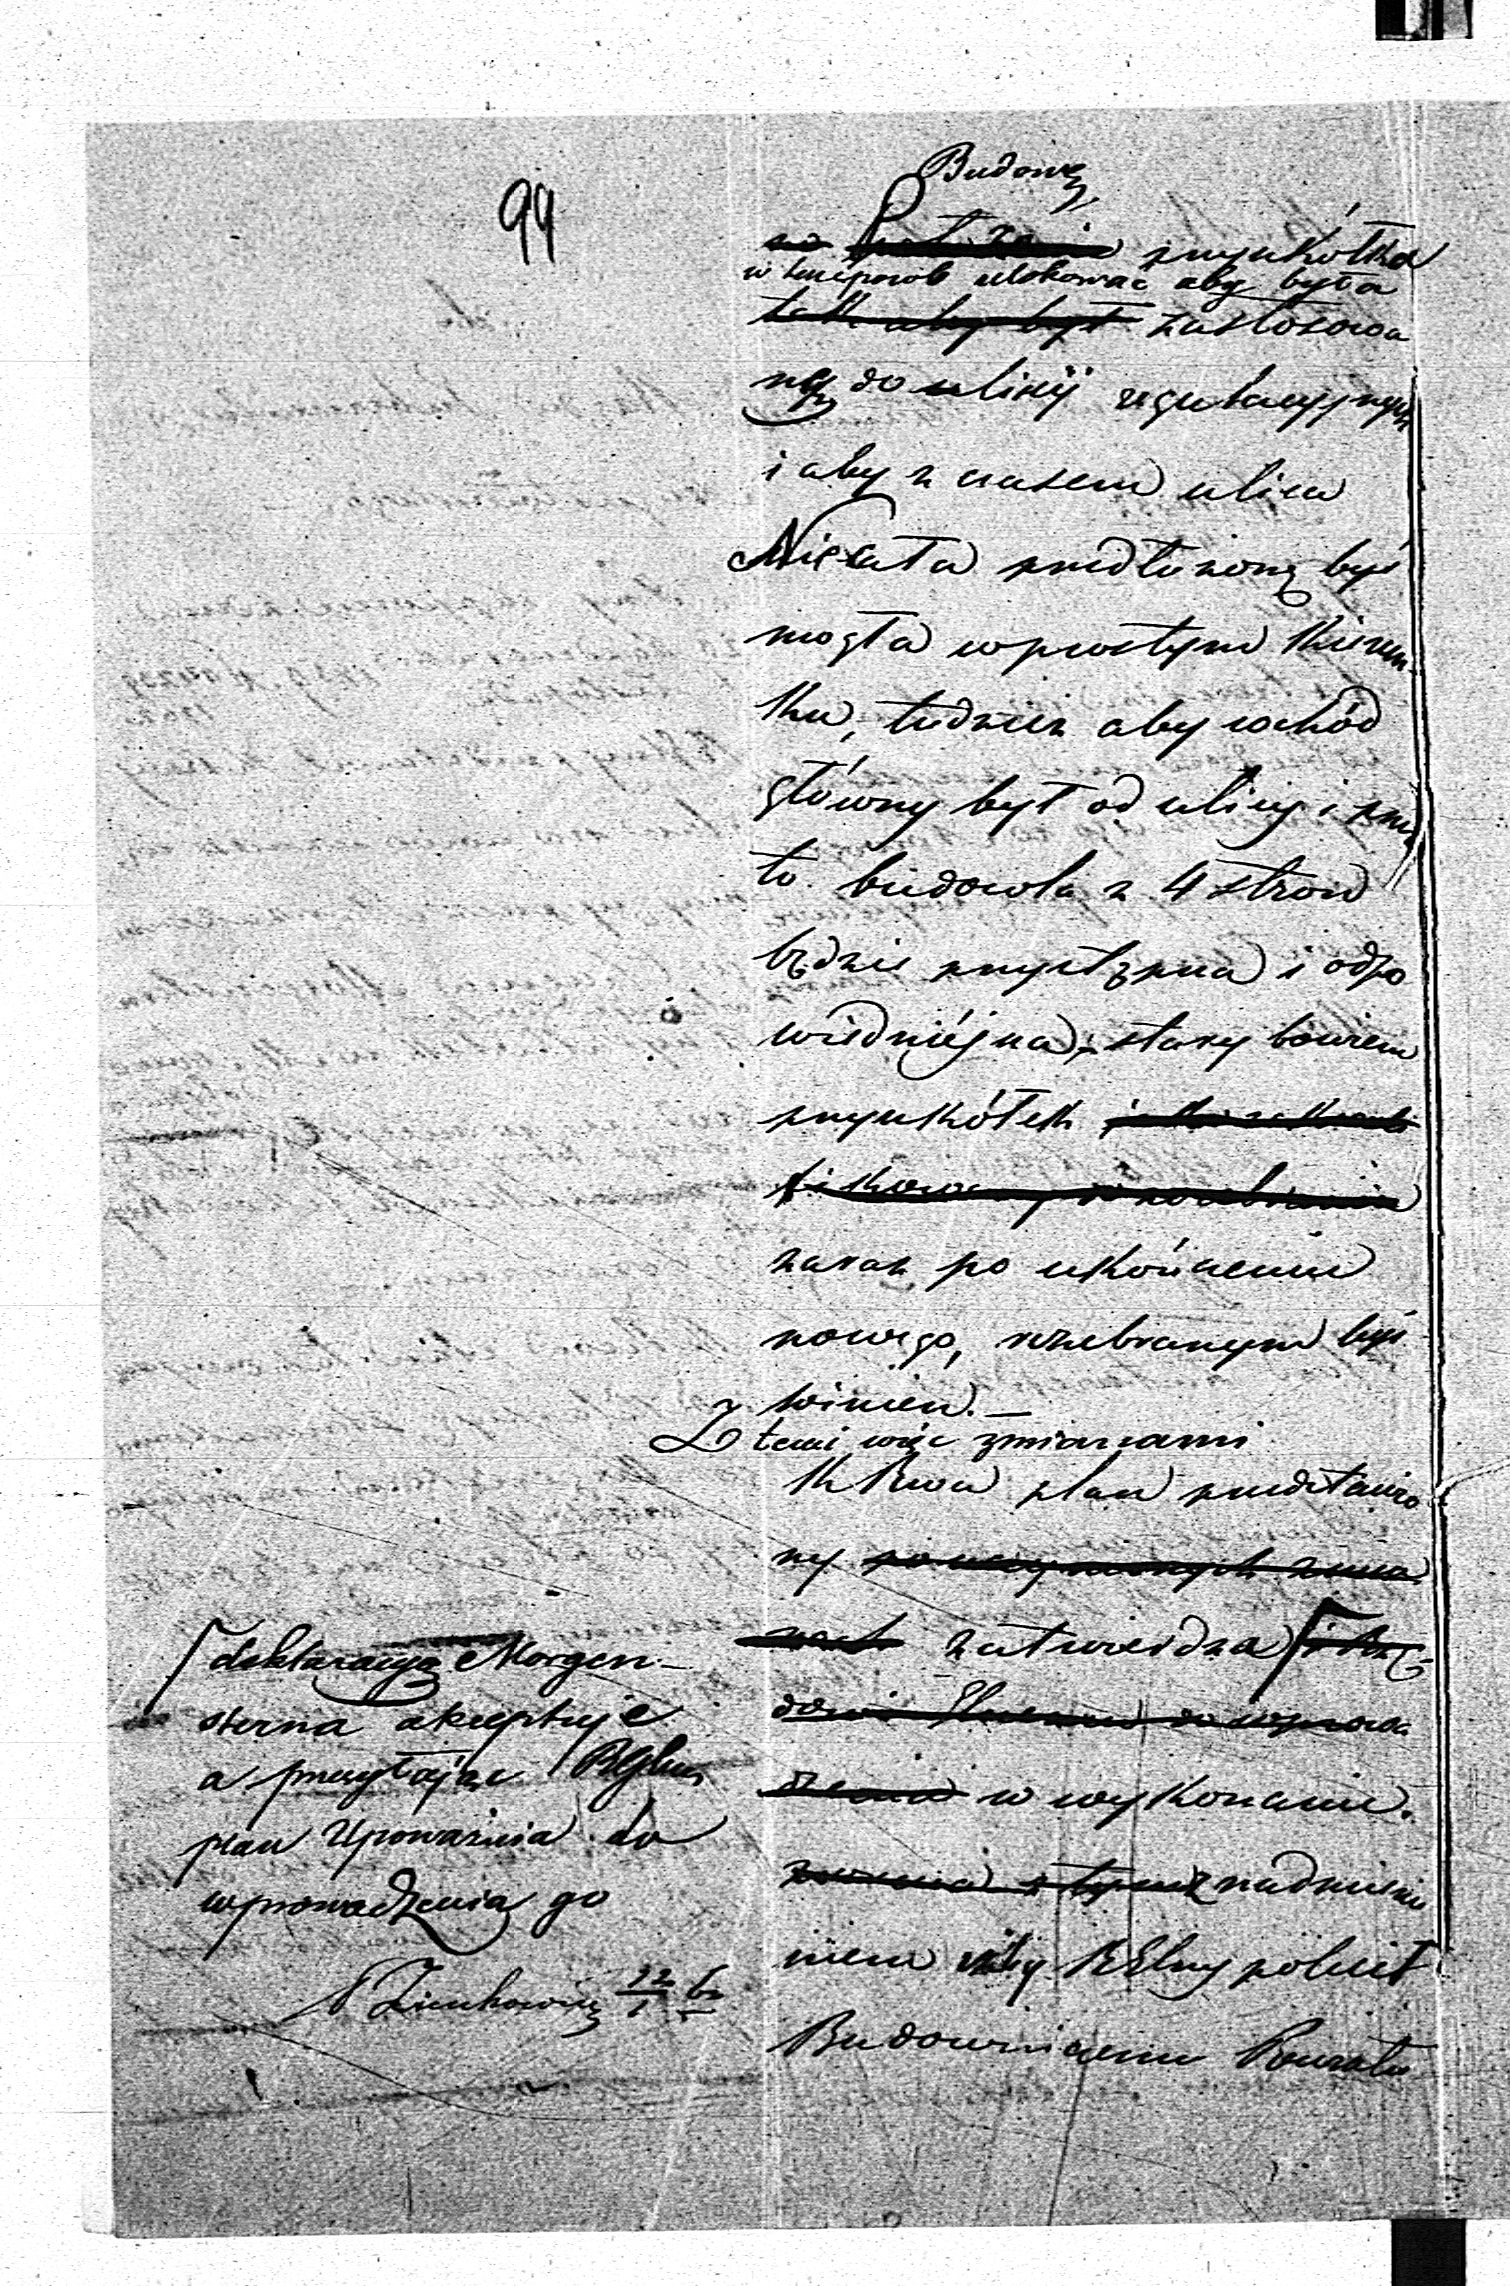 99
Budowę
przyukółka
w ten sposób ulokować aby była
tak aby był zastosowa
ną do ulicÿ regulacyjnych
i aby z czasem ulica
Niecała przedłużoną być
mogła w prostym kierun-
ku, tudzież aby wchód
główny był od ulicy i przez
to budowla z 4 stron
będzie przystępna i odpo
wiedniéjsza, stary bowiem
przyukółek
zaraz po ukończeniu
nowego, rozebranym być
winien. —
Z temi więc zmianami
K Rwa plan przedstawio
ny
zatwierdza
w wykonanie.
z nadmienie
niem iżby RGlny polecił
Budowniczemu Powiatu
deklaracyą Morgen-
sterna akceptuje
a przesyłając RGlnu
plan Upoważnia do
wprowadzenia go